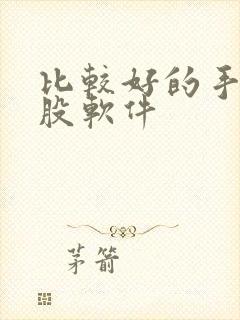 比較好的手
股軟件
茅箭